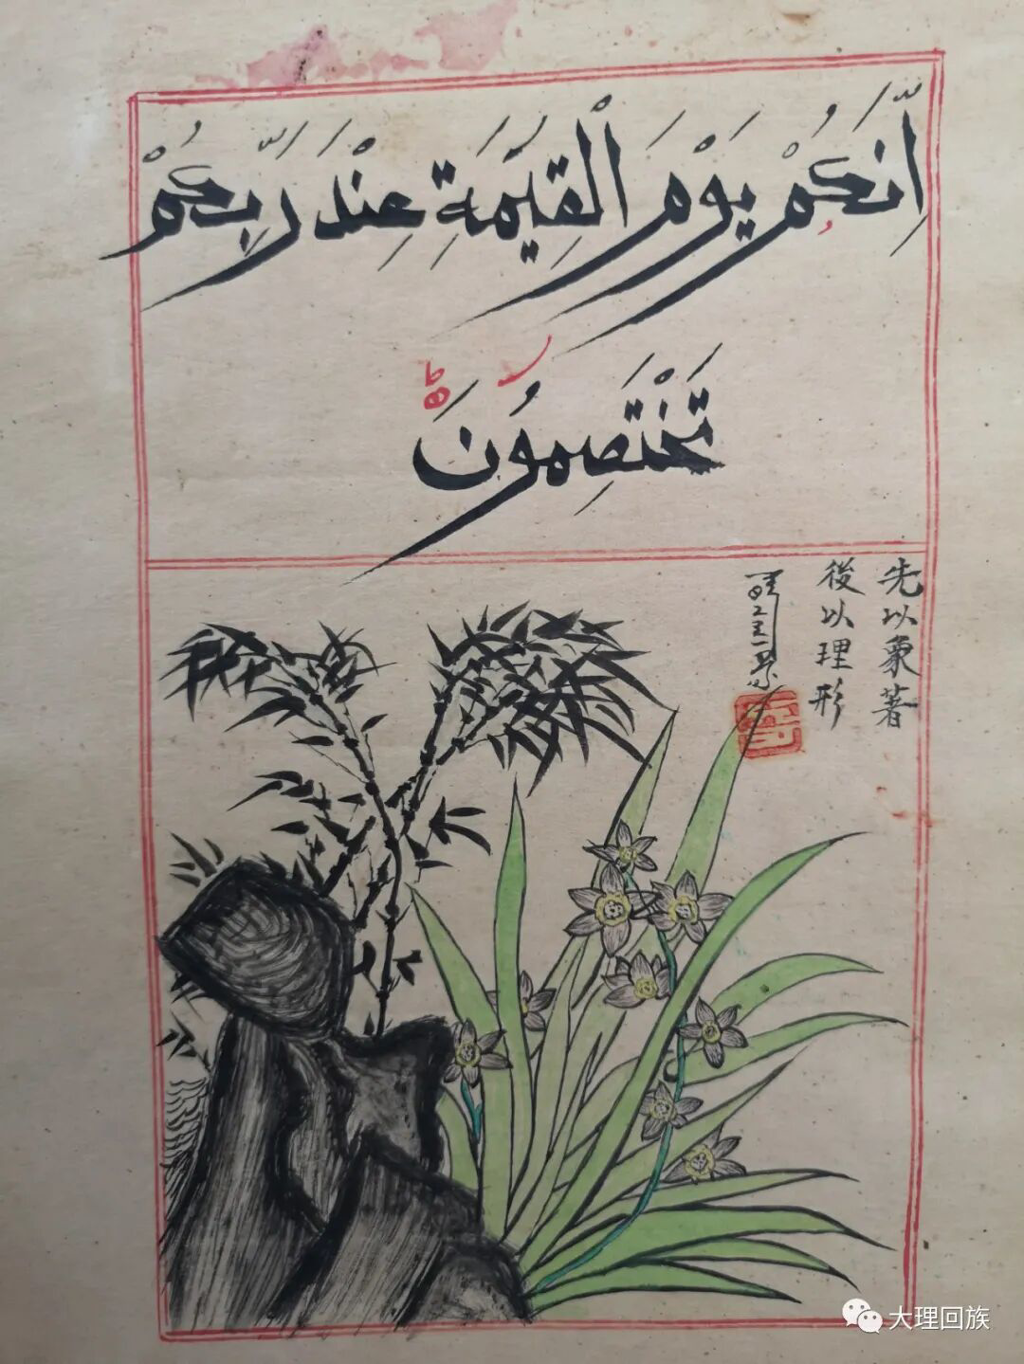 اِنَّكُمْ يَوْمَ الْقِيٰمَةِ عِنْدَ رَبِّكُمْ
تَخْتَصِمُونَ
先以象著
後以理形
大理回族